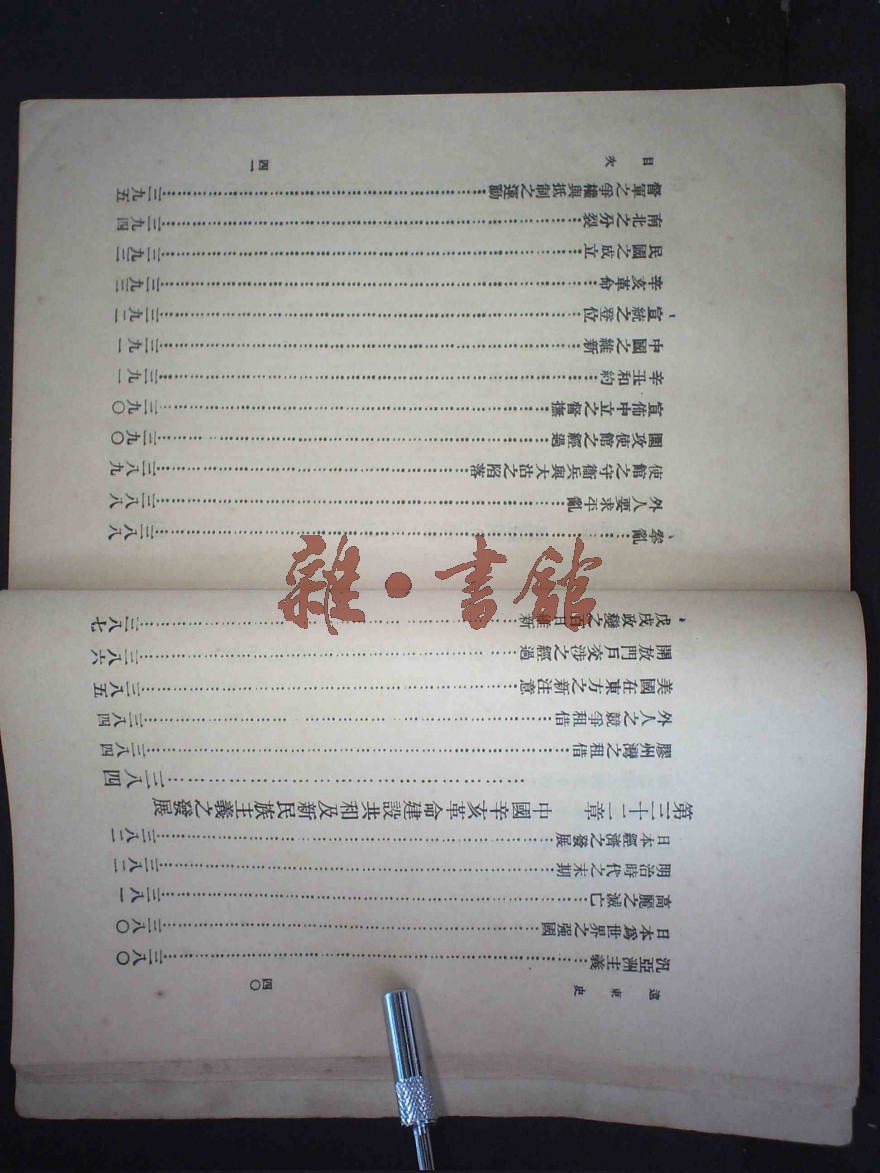 遠東史
四〇
汎亞洲主義……三八〇
日本爲世界之强國……三八〇
高麗之滅亡……三八一
明治時代之末期……三八二
日本經濟之發展……三八二
第三十二章　中國辛亥革命建設共和及新民族主義之發展
……三八四
膠州灣之租借……三八四
外人之競爭租借……三八四
美國在東方之新注意……三八五
開放門戶交涉之經過……三八六
戊戌政變之百日維新……三八七
目次
四一
拳亂……三八八
外人要求平亂……三八八
使館之守衞兵與大沽之陷落……三八九
圍攻使館之經過……三九〇
宣佈中立之督撫……三九〇
辛丑和約……三九一
中國之維新……三九一
宣統之登位……三九二
辛亥革命……三九三
民國之成立……三九三
南北之分裂……三九四
督軍之爭權與抵制之運動……三九五
雜·書館